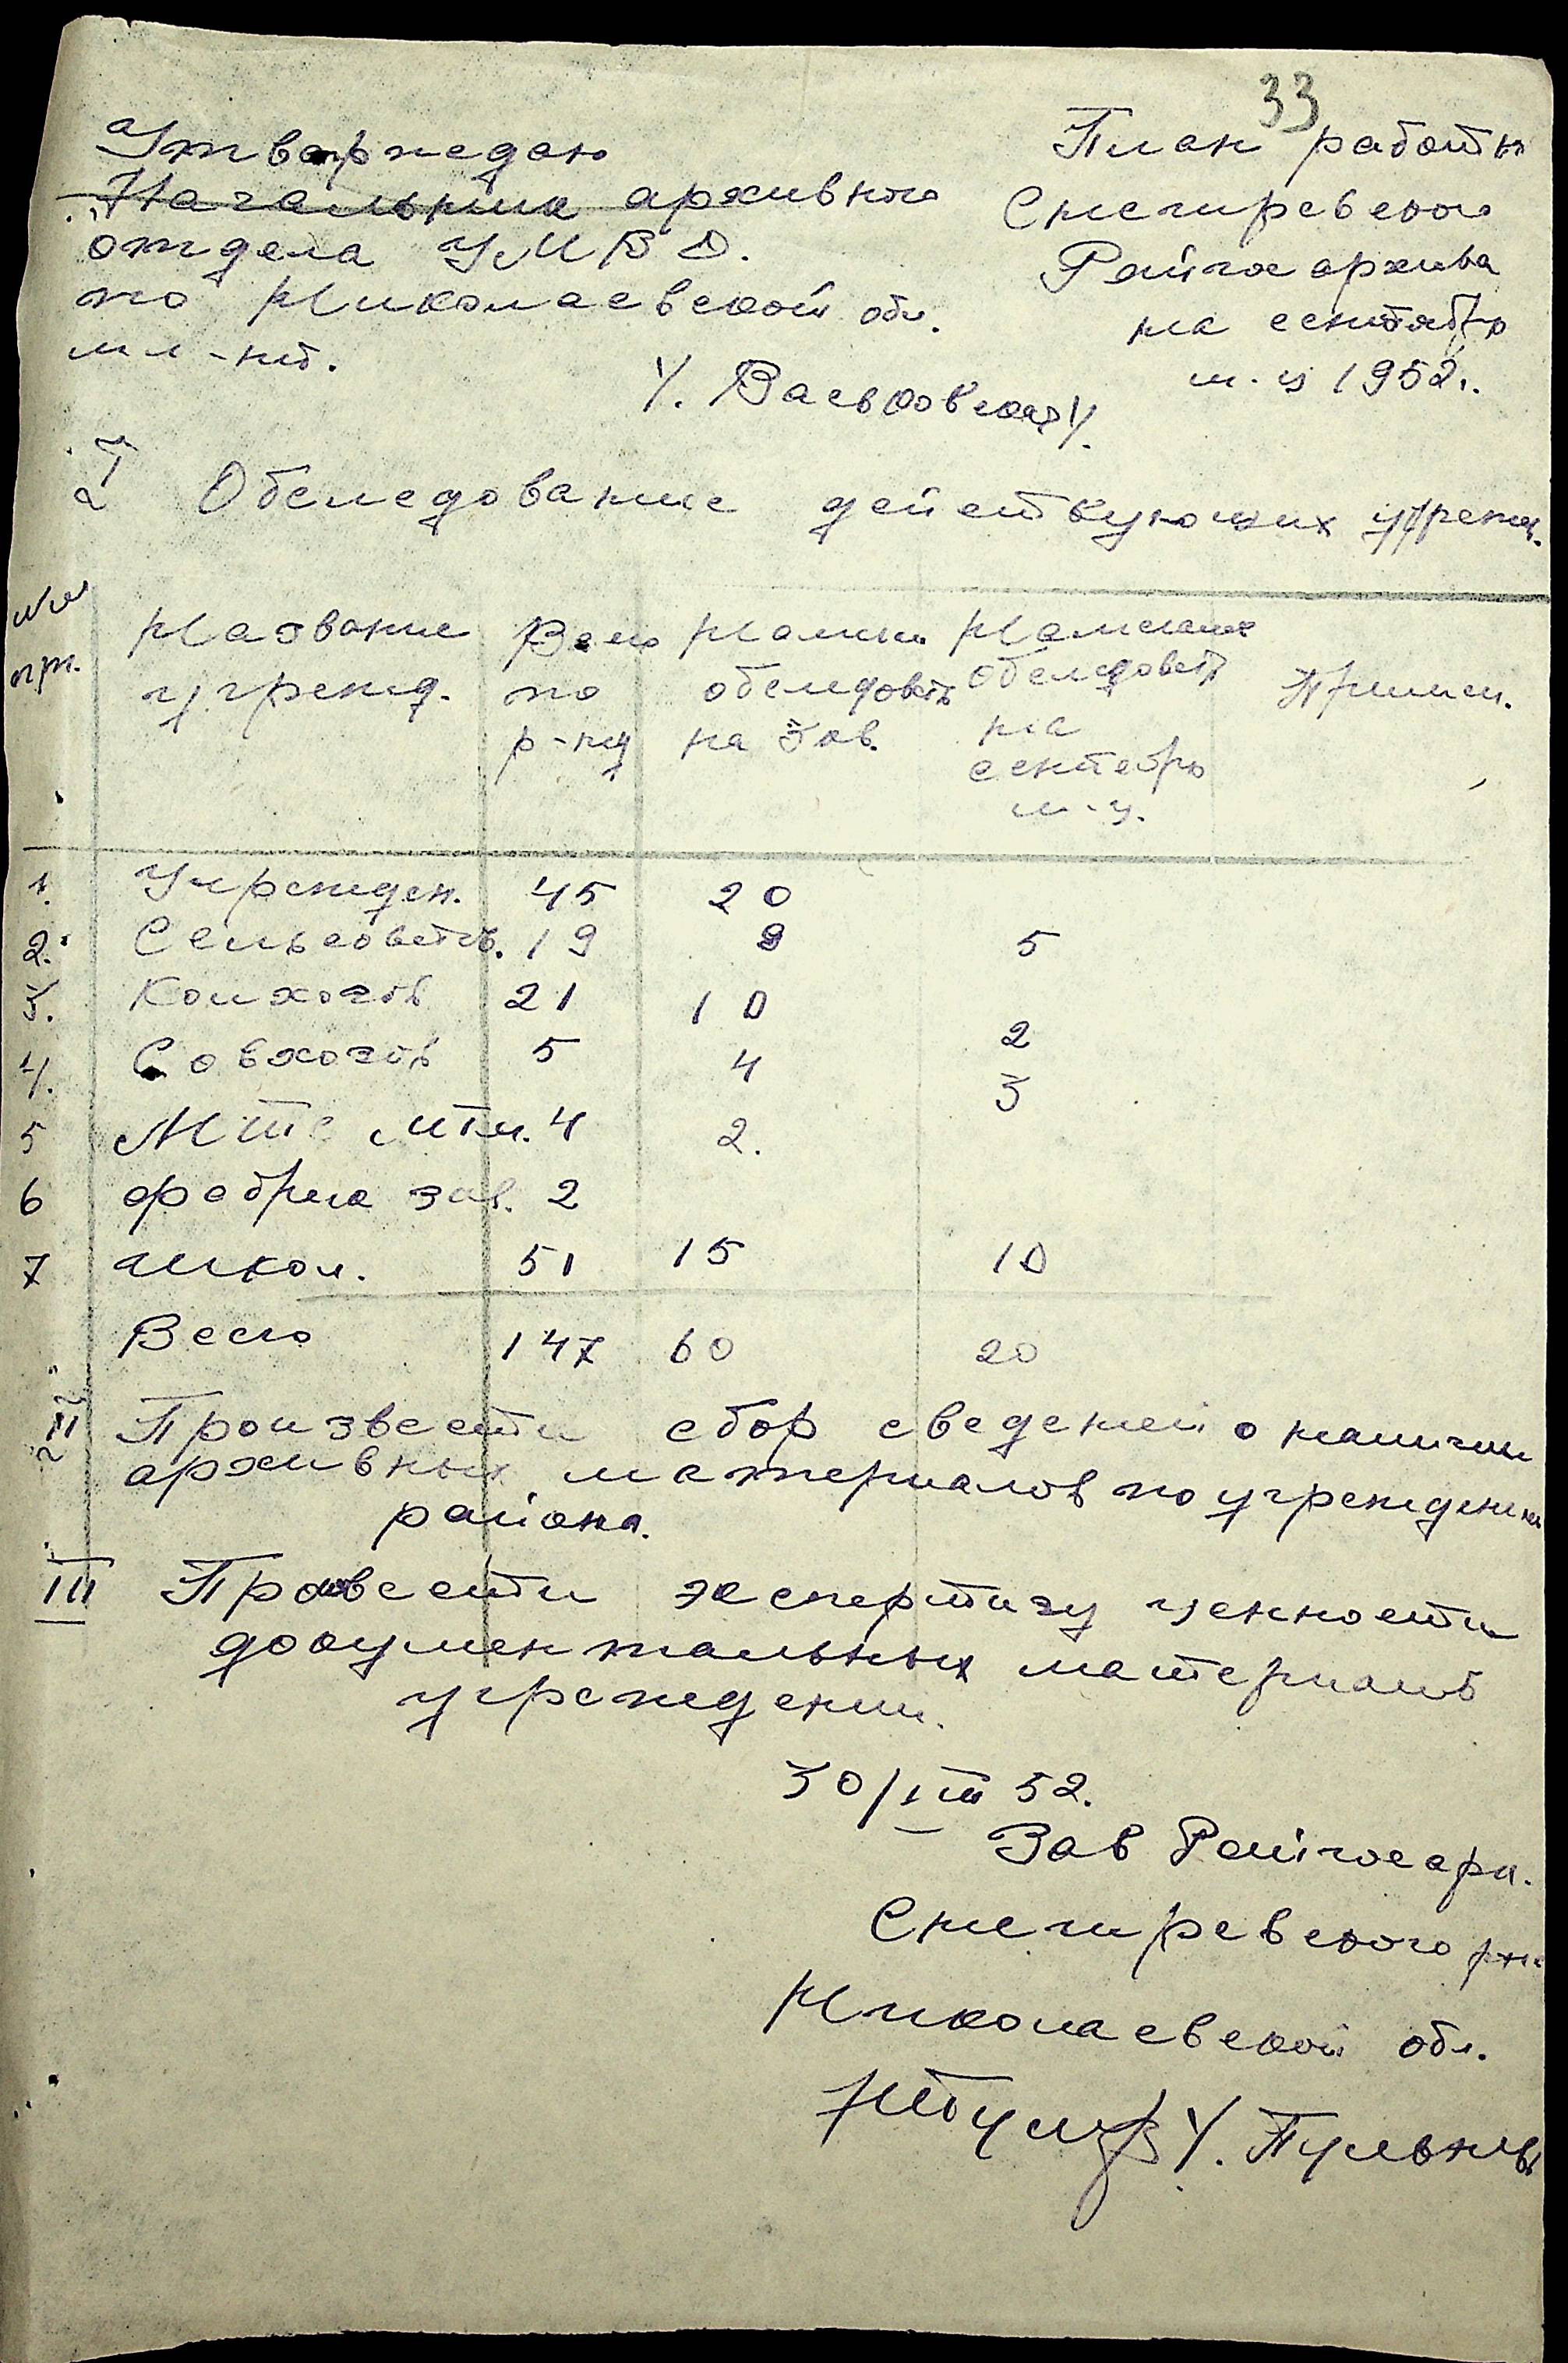 33
Утверждаю
Начальник архивного
отдела УМВД.
по Николаевской обл.
мл-нт.
План работы
Снегиревского
Райгосархива
на сентябрь
м-ц 1952г.
I Обследование действующих учрежд.
№№ пп. Название учрежд. Всего по р-ну обследовать на 3 кв. обследовать на сентябрь м-ц. Примеч.
1. Учрежден. 45 20
2. Сельсоветов. 19 9 5
3. Колхозов 21 10 2
4. Совхозов 5 4 3
5 Мтс 4 2.
6 фабрик зав. 2
7 школ. 51 15 10
Всего 147 60 20
II Произвести сбор сведений о наличии
архивных материалов по учреждениям
района.
III Провести экспертизу ценности
документальных материалов
учреждении.
30/VIII 52.
Зав Райгосарх.
Снегиревского р-на
Николаевской обл.